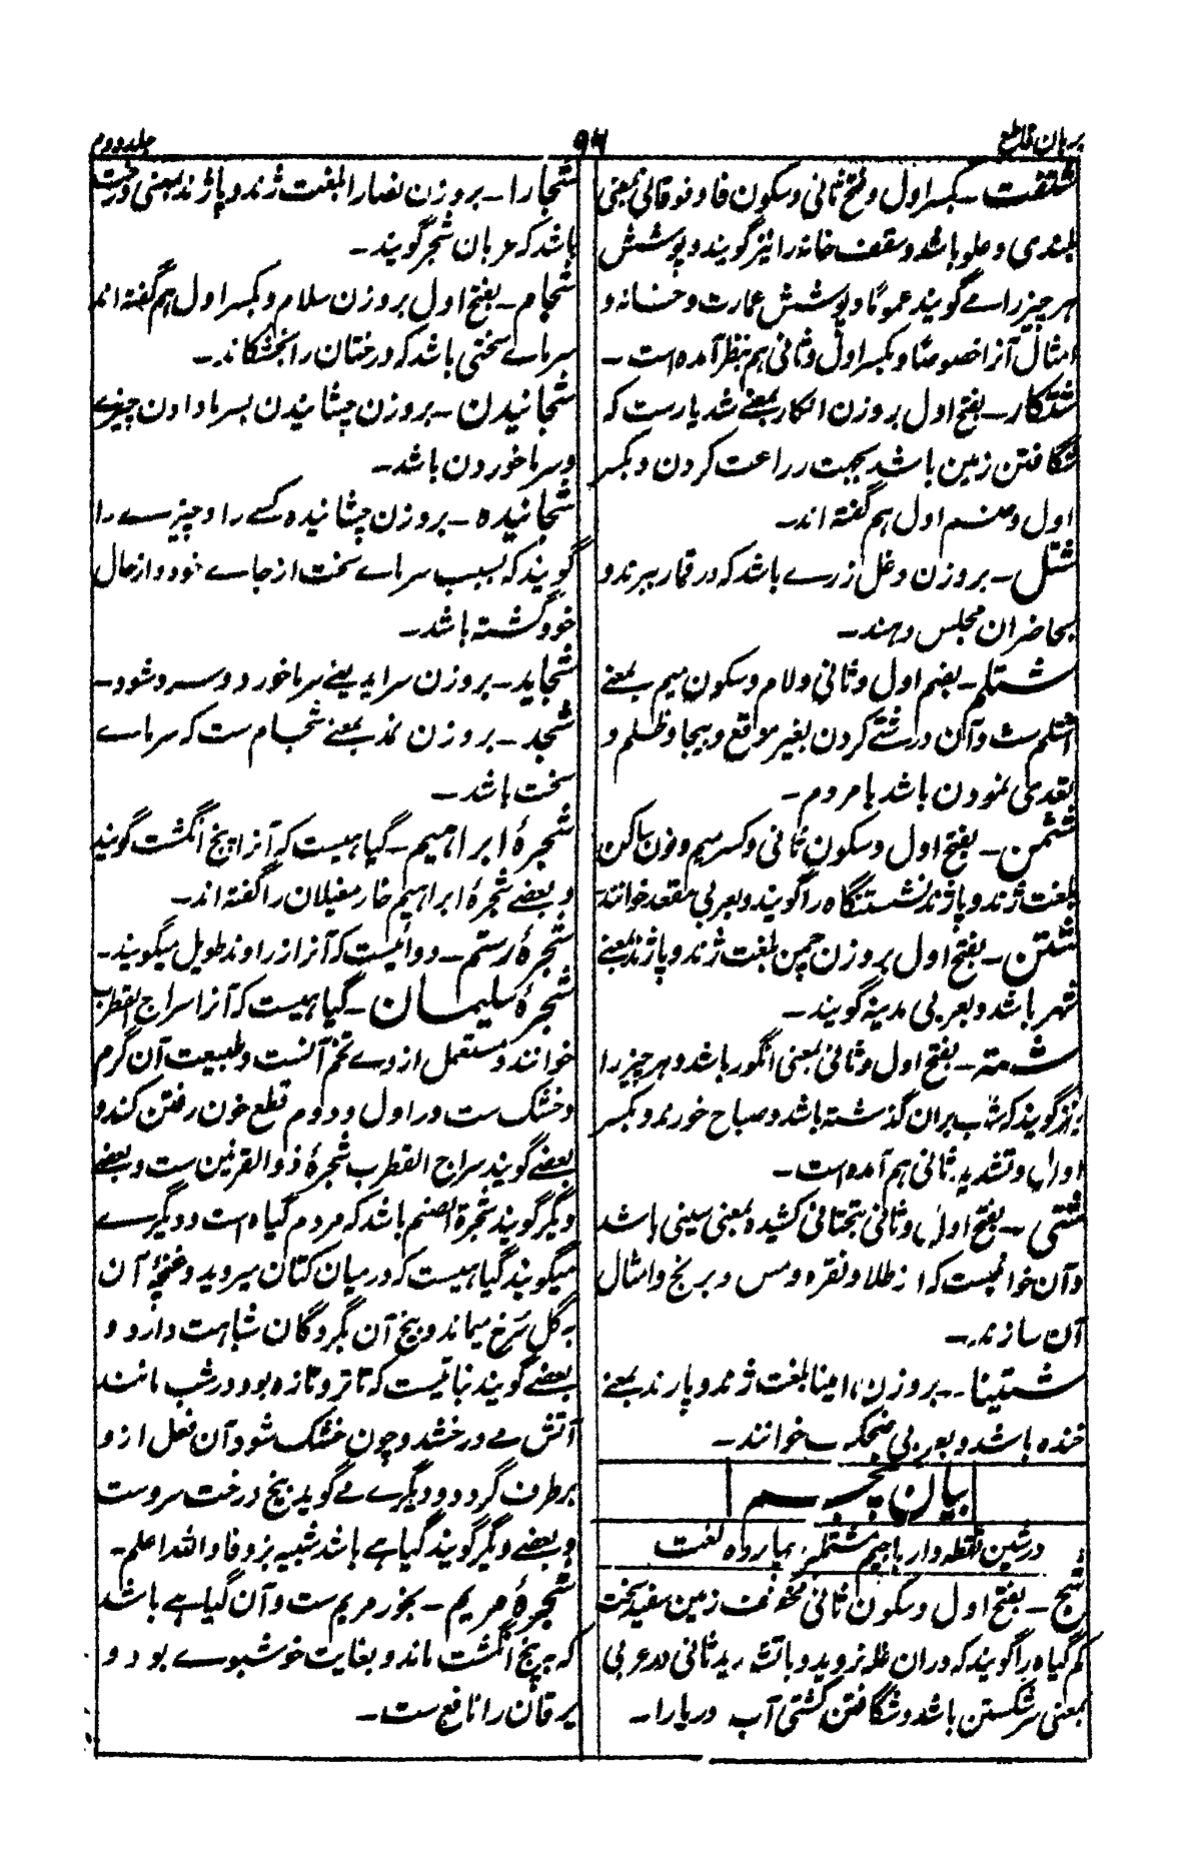 برہان قاطع
۹۶
جلد دوم
شتفت ـ بکسر اول و فتح ثانی و سکون فا و فوقانی بمعنی
بلندی و علو باشد و سقف خانہ را نیز گویند و پوشش
ہر چیز را مے گویند عموماً و پوشش عمارت و خانہ و
امثال آنرا خصوصاً و بکسر اول و ثانی ہم بنظر آمدہ است ـ
شتکار ـ بفتح اول بروزن انکار بمعنے شدیارست کہ
شگافتن زمین باشد بجہت زراعت کردن و بکسر
اول و ضم اول ہم گفتہ اند ـ
شتل ـ بروزن دغل زرے باشد کہ در قمار ببرند و
بحاضران مجلس دہند ـ
شتلم ـ بضم اول و ثانی و لام و سکون میم بمعنے
اشتلم ست و آن درشتے کردن بغیر موقع و بیجا و ظلم و
تعدی نمودن باشد با مردم ـ
شتمن ـ بفتح اول و سکون ثانی و کسر میم و نون ساکن
بلغت ژند و پاژند نشستنگاہ را گویند و بعربی مقعد خوانند
شتن ـ بفتح اول بروزن چمن بلغت ژند و پاژند بمعنے
شہر باشد و بعربی مدینہ گویند ـ
شتہ ـ بفتح اول و ثانی بمعنی انگور باشد و ہر چیز را
نیز گویند کہ شب بران گذشتہ باشد و صباح خورند و بکسر
اول و تشدید ثانی ہم آمدہ است ـ
شتی ـ بفتح اول و ثانی بتحتانی کشیدہ بمعنی سینی باشد
و آن خوانیست کہ از طلا و نقرہ و مس و برنج و امثال
آن سازند ـ
شتینا ـ بروزن امینا بلغت ژند و پازند بمعنے
خندہ باشد و بعربی ضحک خوانند ـ
بیان پنجم
در شین نقطہ دار با جیم مشتمل بر چہاردہ لغت
شج ـ بفتح اول و سکون ثانی مخفف زمین سفید سخت
کم گیاہ را گویند کہ دران غلہ نروید و باتشدید ثانی در عربی
بمعنی سر شکستن باشد و شگافتن کشتی آب دریا را ـ
شجارا ـ بروزن نصارا بلغت ژند و پاژند بمعنی درخت
باشد کہ عربان شجر گویند ـ
شجام ـ بفتح اول بروزن سلام و بکسر اول ہم گفتہ اند
سرماے سختی باشد کہ درختان را بخشکاند ـ
شجانیدن ـ بروزن چشانیدن بسرما دادن چیزے
و سرما خوردن باشد ـ
شجانیدہ ـ بروزن چشانیدہ کسے را و چیزے را
گویند کہ بسبب سرماے سخت از جاے خود و از حال
خود گشتہ باشد ـ
شجاید ـ بروزن سراید یعنے سرما خورد و سرد شود ـ
شجد ـ بروزن نمد بمعنے شجام ست کہ سرماے
سخت باشد ـ
شجرۂ ابراہیم ـ گیاہیست کہ آنرا پنج انگشت گویند
و بعضے شجرۂ ابراہیم خار مغیلان را گفتہ اند ـ
شجرۂ رستم ـ دوائیست کہ آنرا زراوند طویل میگویند ـ
شجرۂ سلیمان ـ گیاہیست کہ آنرا سراج القطرب
خوانند و مستعمل ازوے تخم آنست و طبیعت آن گرم
و خشک ست در اول و دوم قطع خون رفتن کند و
بعضے گویند سراج القطرب شجرۂ ذوالقرنین ست و بعضے
دیگر گویند شجرۃ الصنم باشد کہ مردم گیاہ است و دیگرے
میگویند گیاہیست کہ درمیان کتان میروید و غنچۂ آن
بہ گل سرخ میماند و بیخ آن بگردگان شباہت دارد و
بعضے گویند نباتیست کہ تا تر و تازہ بود در شب مانند
آتش مے درخشد و چون خشک شود آن فعل ازو
برطرف گردد و دیگرے مے گوید بیخ درخت سروست
و بعضے دیگر گویند گیاہے باشد شبیہ بزوفا و اللہ اعلم ـ
شجرۂ مریم ـ بخور مریم ست و آن گیاہے باشد
کہ بہ پنج انگشت ماند و بغایت خوشبوے بود و
یرقان را نافع ست ـ